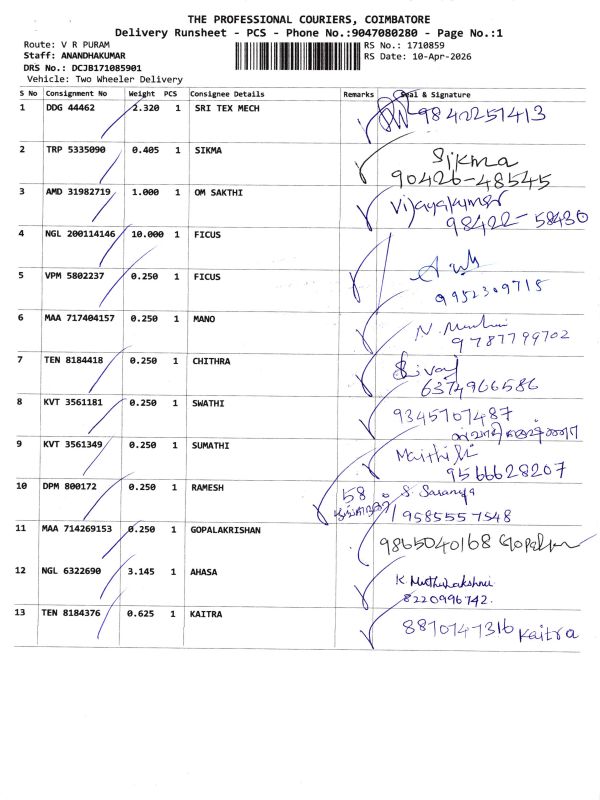 THE PROFESSIONAL COURIERS, COIMBATORE
Delivery Runsheet - PCS - Phone No.:9047080280 - Page No.:1
Route: V R PURAM
Staff: ANANDHAKUMAR
DRS No.: DCJB171085901
Vehicle: Two Wheeler Delivery
RS No.: 1710859
RS Date: 10-Apr-2026
S No Consignment No Weight PCS Consignee Details Remarks Seal & Signature
1 DDG 44462 2.320 1 SRI TEX MECH 9842251413
2 TRP 5335090 0.405 1 SIKMA Sikma
90426-48545
3 AMD 31982719 1.000 1 OM SAKTHI Vijayakumar
98422-58430
4 NGL 200114146 10.000 1 FICUS
5 VPM 5802237 0.250 1 FICUS
9952309715
6 MAA 717404157 0.250 1 MANO
9787799702
7 TEN 8184418 0.250 1 CHITHRA Sivaj
6374966586
8 KVT 3561181 0.250 1 SWATHI 9345707487
9 KVT 3561349 0.250 1 SUMATHI Maithili
9566628207
10 DPM 800172 0.250 1 RAMESH 58 S. Saranya
9585557548
11 MAA 714269153 0.250 1 GOPALAKRISHAN 9865040168
12 NGL 6322690 3.145 1 AHASA K. Muthulakshmi
8220996742.
13 TEN 8184376 0.625 1 KAITRA 8870747316 Kaitra